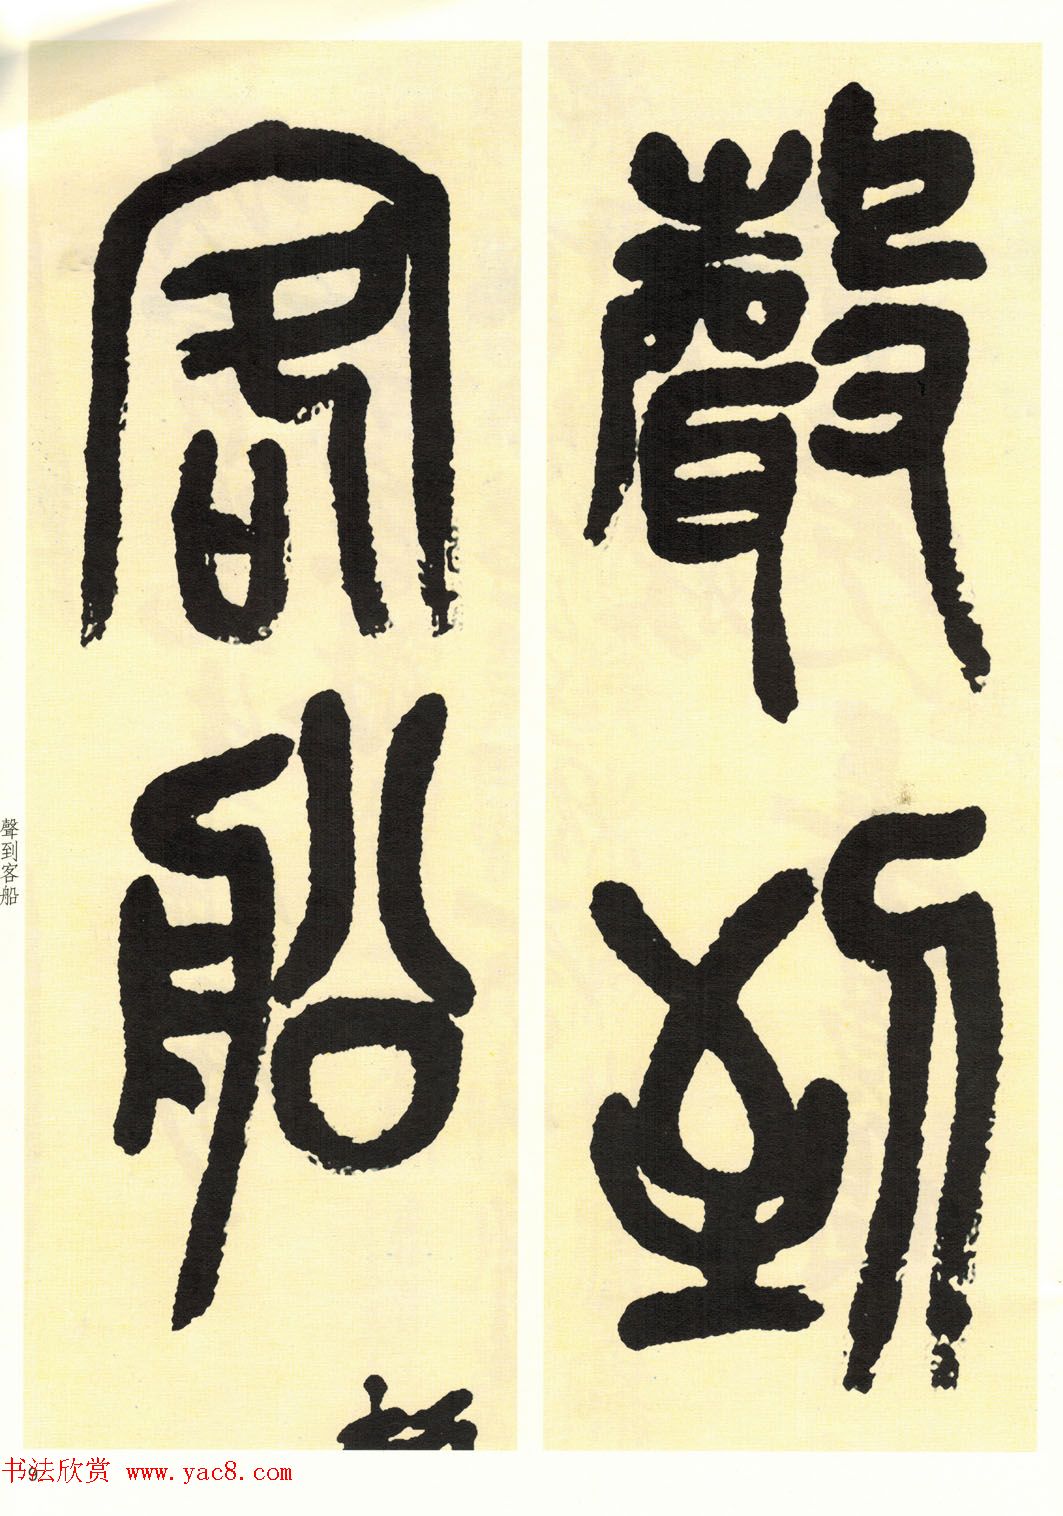 聲到
客船
聲到客船
9
书法欣赏 www.yac8.com